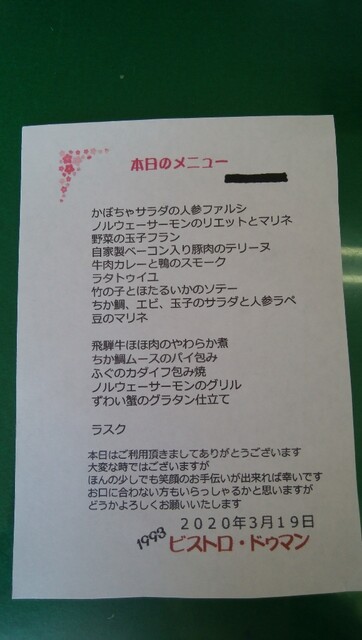 本日のメニュー
かぼちゃサラダの人参ファルシ
ノルウェーサーモンのリエットとマリネ
野菜の玉子フラン
自家製ベーコン入り豚肉のテリーヌ
牛肉カレーと鴨のスモーク
ラタトゥイユ
竹の子とほたるいかのソテー
ちか鯛、エビ、玉子のサラダと人参ラペ
豆のマリネ
飛騨牛ほほ肉のやわらか煮
ちか鯛ムースのパイ包み
ふぐのカダイフ包み焼
ノルウェーサーモンのグリル
ずわい蟹のグラタン仕立て
ラスク
本日はご利用頂きましてありがとうございます
大変な時ではございますが
ほんの少しでも笑顔のお手伝いが出来れば幸いです
お口に合わない方もいらっしゃるかと思いますが
どうかよろしくお願いいたします
2020年3月19日
1993 ビストロ・ドゥマン